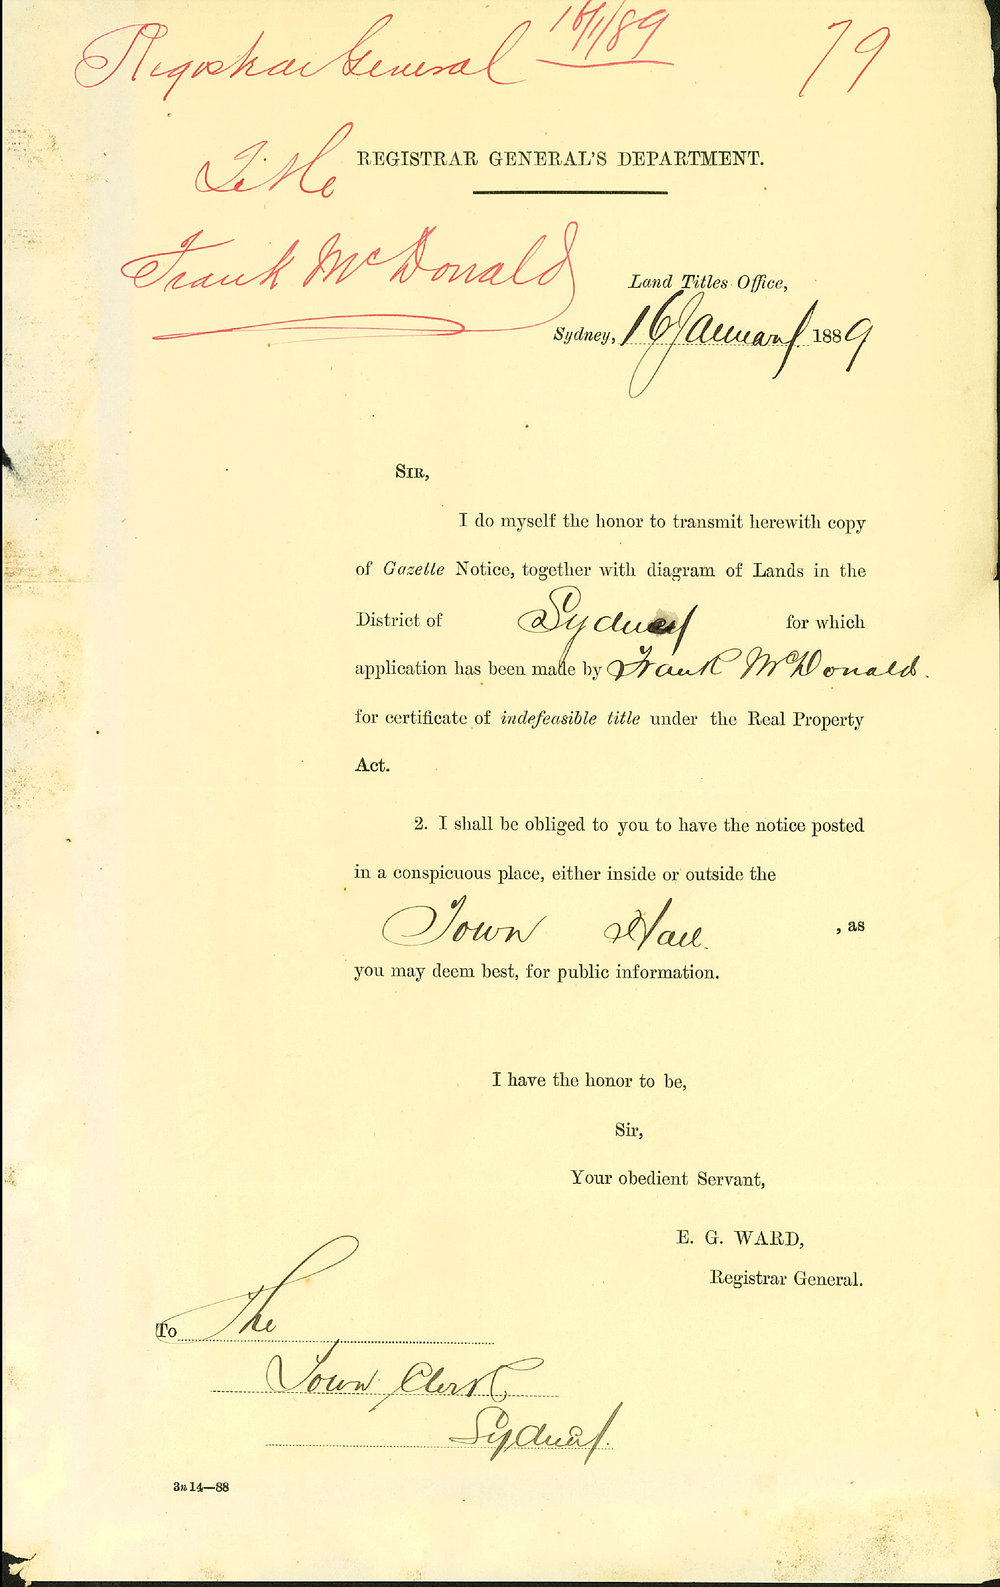 Registrar General 16/1/89 79
Title
REGISTRAR GENERAL'S DEPARTMENT.
Frank McDonald
Land Titles Office,
Sydney, 16 January 1889
SIR,
I do myself the honor to transmit herewith copy
of Gazette Notice, together with diagram of Lands in the
District of Sydney for which
application has been made by Frank McDonald.
for certificate of indefeasible title under the Real Property
Act.
2. I shall be obliged to you to have the notice posted
in a conspicuous place, either inside or outside the
Town Hall. , as
you may deem best, for public information.
I have the honor to be,
Sir,
Your obedient Servant,
E. G. WARD,
Registrar General.
To The
Town Clerk
Sydney.
3n14—88